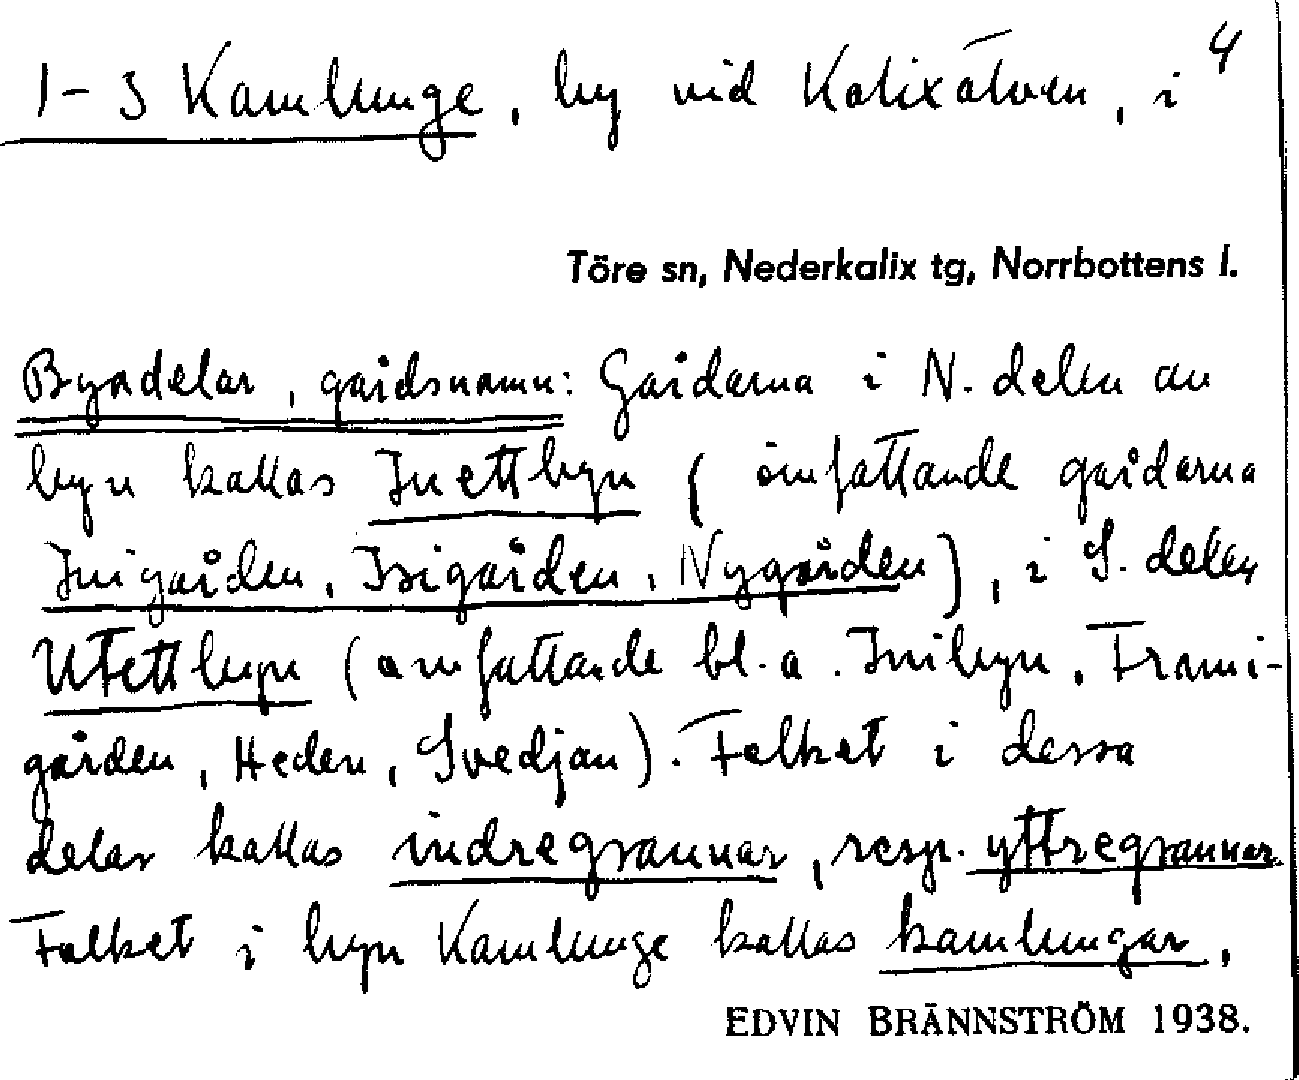 4
1-3 Kamlunge, by vid Kalixälven, i
Töre sn, Nederkalix tg, Norrbottens l.
Byadelar, gårdsnamn: Gårdarna i N. delen av
byn kallas Inettbyn (omfattande gårdarna
Inigården, Isigården, Nygården), i S. delen
Utettbyn (omfattande bl.a. Inibyn, Frami-
gården, Heden, Svedjan). Folket i dessa
delar kallas indregrannar, resp. yttregrannar.
Folket i byn Kamlunge kallas kamlungar.
EDVIN BRÄNNSTRÖM 1938.